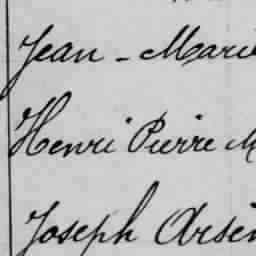 Jean-Marie
Henri Pierre M
Joseph Arsèn